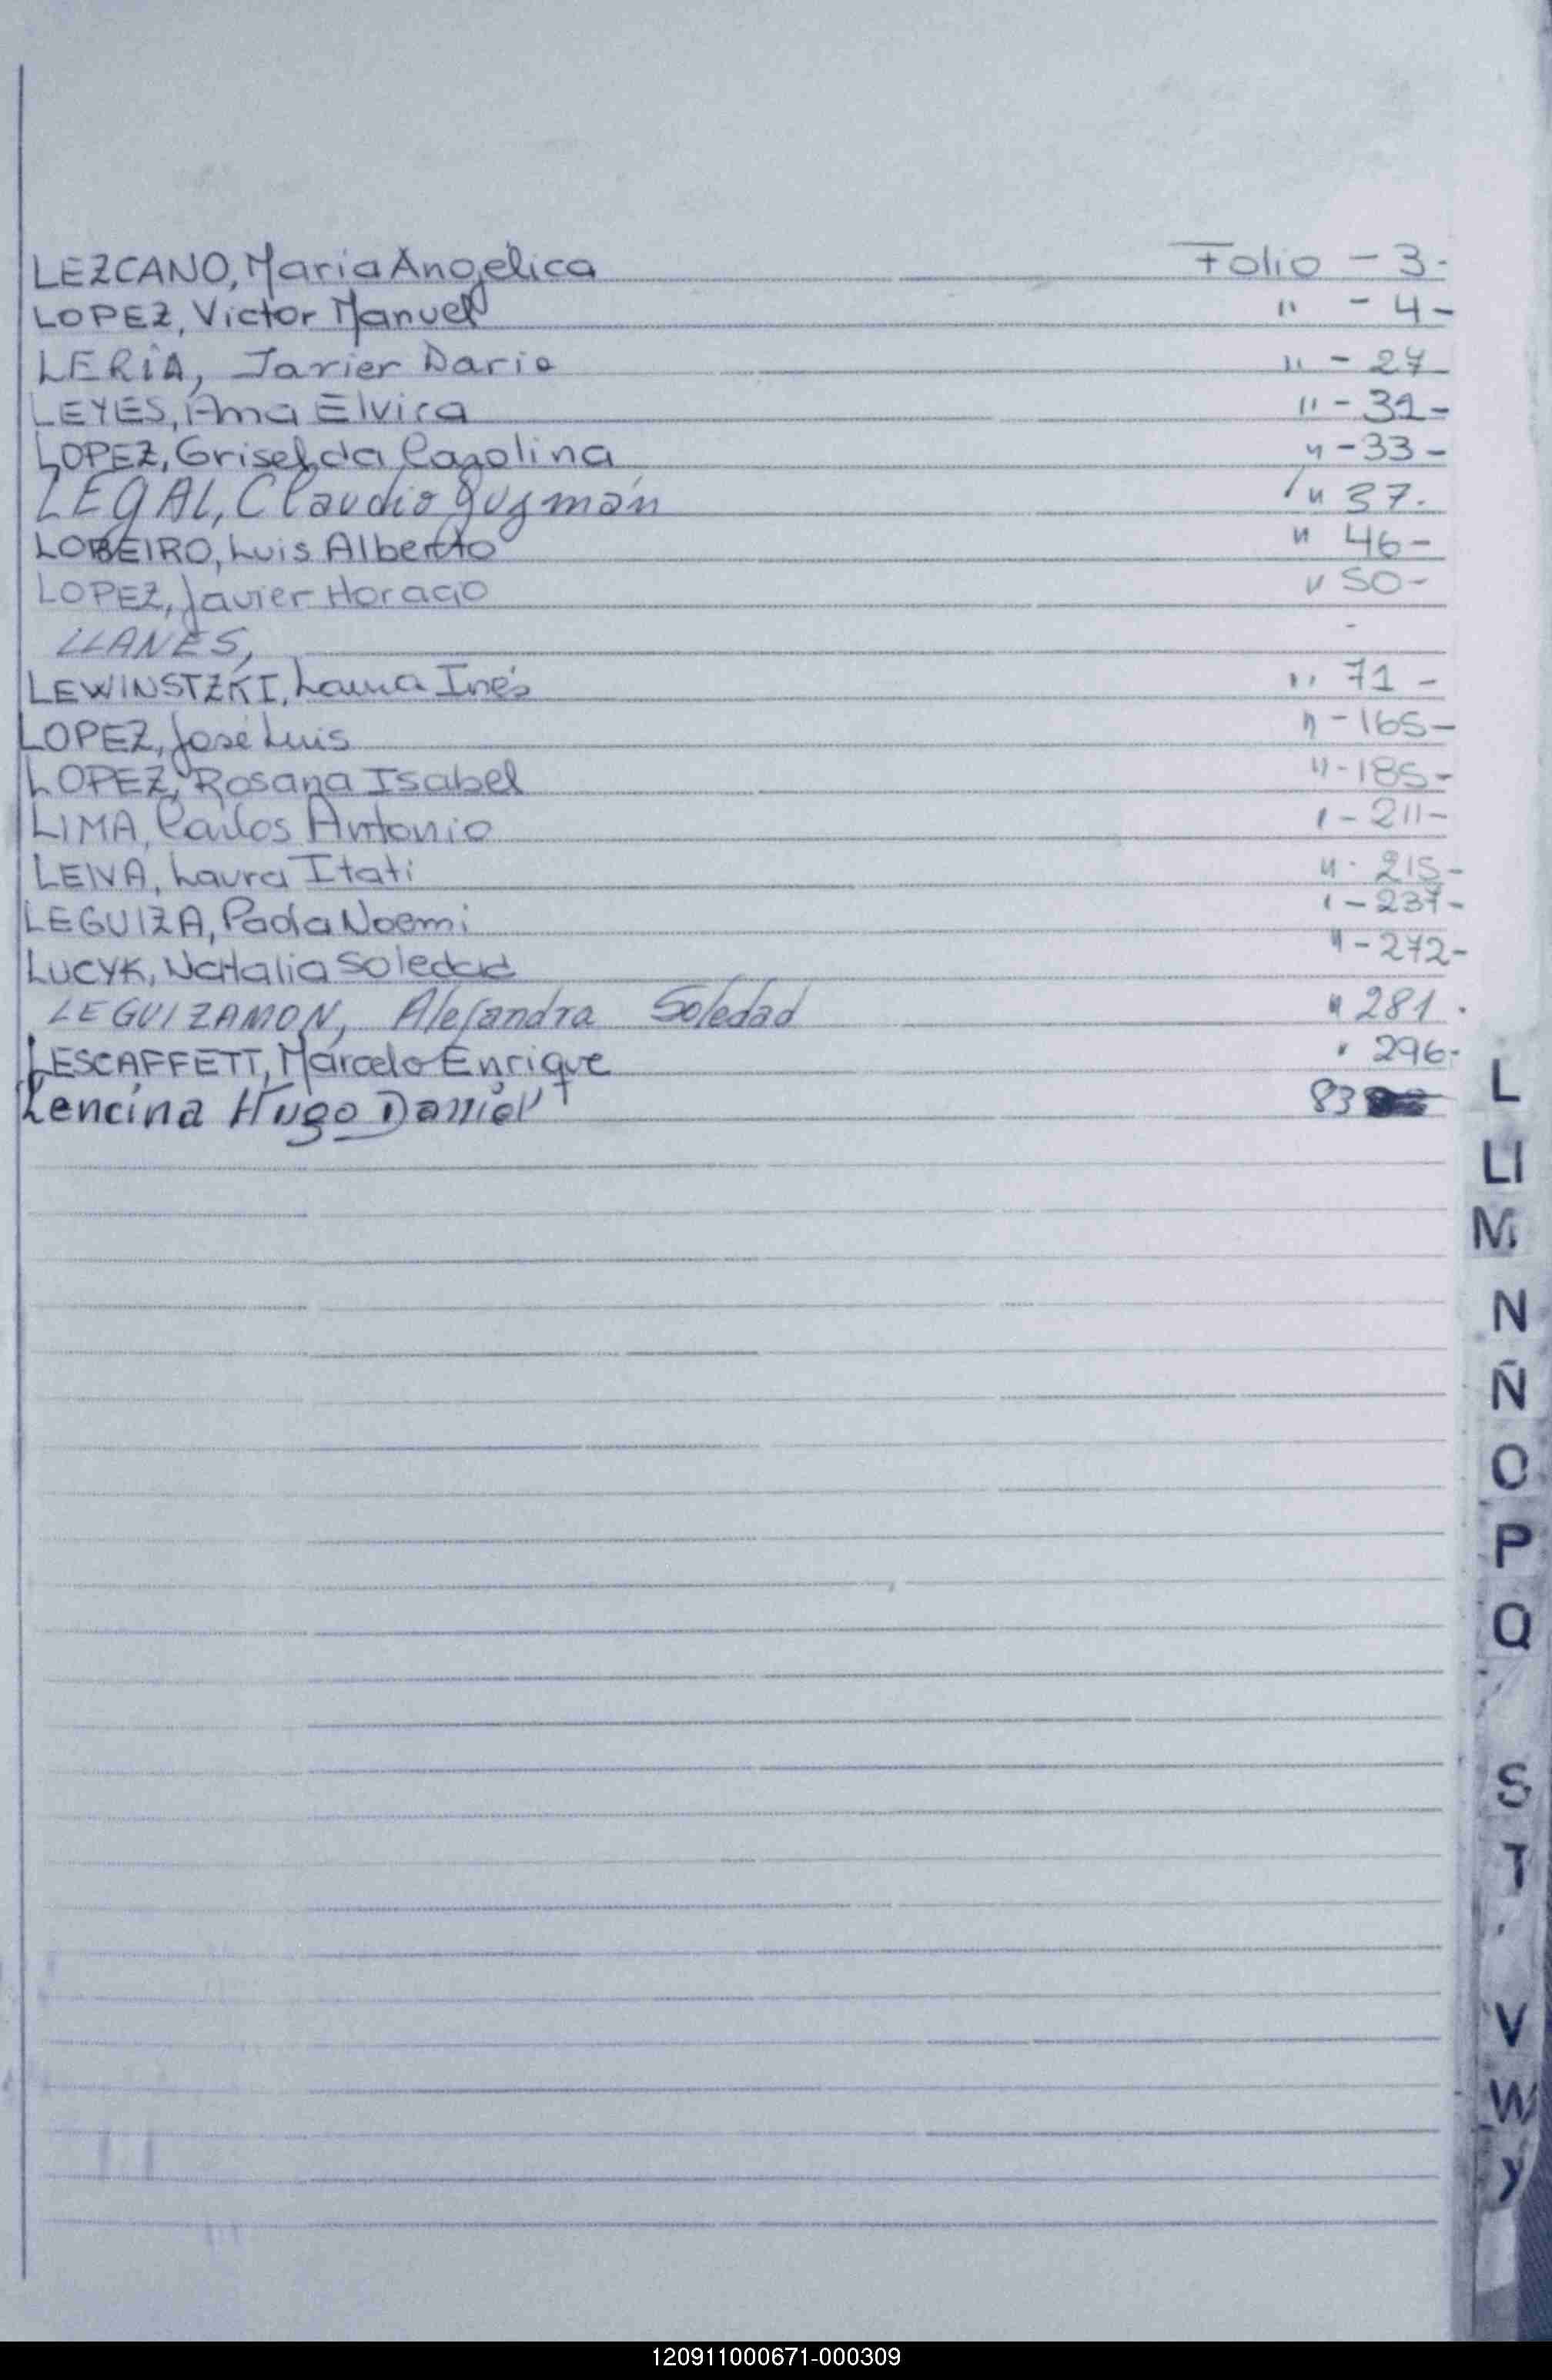 LEZCANO, Maria Angélica Folio - 3-
LOPEZ, Victor Manuel " - 4-
LERÍA, Javier Dario " - 27
LEYES, Ana Elvira " - 31-
LOPEZ, Griselda Carolina " - 33-
LEGAL, Claudio Guzmán " 37.
LOBEIRO, Luis Alberto " 46-
LOPEZ, Javier Horacio " 50-
LLANES, -
LEWINSTZKI, Laura Inés " 71 -
LOPEZ, José Luis " - 165-
LOPEZ, Rosana Isabel " - 185-
LIMA, Carlos Antonio " - 211-
LEIVA, Laura Itati " - 215-
LEGUIZA, Paola Noemi " - 237-
LUCYK, Natalia Soledad " - 272-
LEGUIZAMON, Alejandra Soledad " 281.
LESCAFFETT, Marcelo Enrique " 296-
Lencina Hugo Daniel 83
L
Ll
M
N
Ñ
O
P
Q
S
T
V
W
Y
120911000671-000309